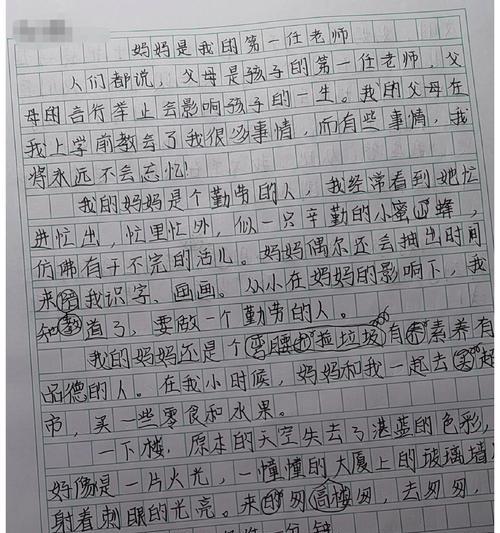 妈妈是我的第一任老师
人们都说，父母是孩子的第一任老师，父
母的言行举止会影响孩子的一生。我的父母在
我上学前教会了我很多事情，而有些事情，我
将永远不会忘忆！
我的妈妈是个勤劳的人，我经常看到她忙
进忙出，忙里忙外，似一只辛勤的小蜜蜂，
仿佛有干不完的活儿。妈妈偶尔还会抽出时间
来陪我识字、画画。从小在妈妈的影响下，我
知道了，要做一个勤劳的人。
我的妈妈还是个弯腰捡垃圾有素养有
品德的人。在我小时候，妈妈和我一起去超
市，买一些零食和水果。
一下楼，原本的天空失去了湛蓝的色彩，
好像是一片火光，一幢幢的大厦上的玻璃墙
射着刺眼的光亮。来的匆匆，去匆匆，